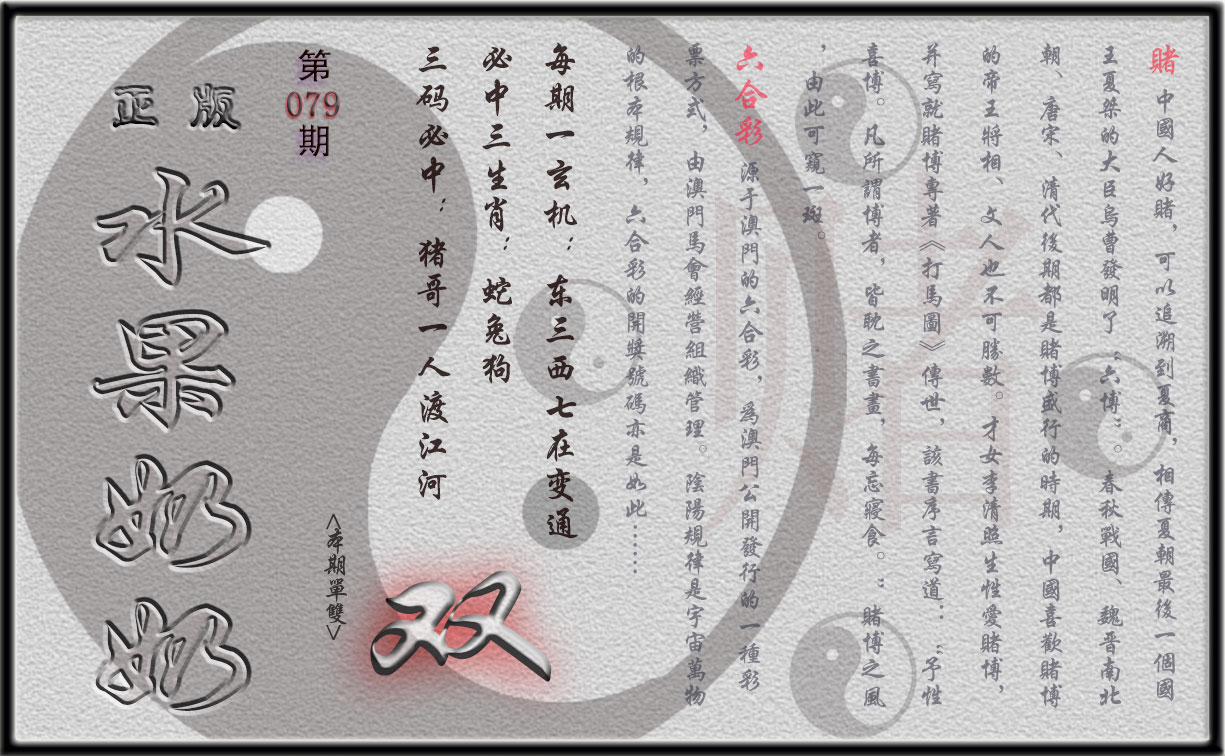 賭 中國人好賭，可以追溯到夏商，相傳夏朝最後一個國
王夏桀的大臣烏曹發明了“六博”。春秋戰國、魏晋南北
朝、唐宋、清代後期都是賭博盛行的時期，中國喜歡賭博
的帝王將相、文人也不可勝數。才女李清照生性愛賭博，
并寫就賭博專著《打馬圖》傳世，該書序言寫道：“予性
喜博。凡所謂博者，皆耽之書畫，每忘寢食。”賭博之風
，由此可窺一斑。
六合彩 源于澳門的六合彩，爲澳門公開發行的一種彩
票方式，由澳門馬會經營組織管理。陰陽規律是宇宙萬物
的根本規律，六合彩的開獎號碼亦是如此……
每期一玄机：东三西七在变通
必中三生肖：蛇兔狗
三码必中：猪哥一人渡江河
<本期單雙>
双
第
079
期
正版
水果奶奶
賭